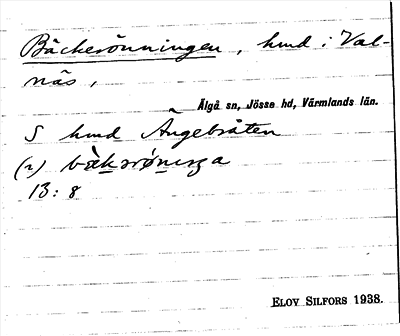 Bäckerönningen, hmd i Val-
näs,
Älgå sn, Jösse hd, Värmlands län.
S hmd Ängebråten
(2) bäkrøniŋa
13:8
ELOV SILFORS 1938.